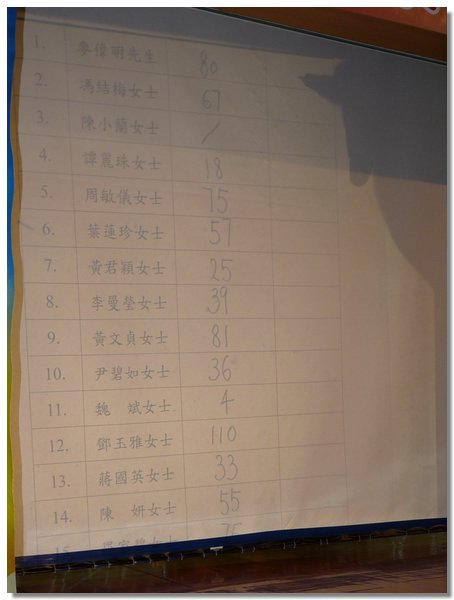 1. 麥偉明先生 80
2. 馮結梅女士 67
3. 陳小蘭女士 /
4. 譚麗珠女士 18
5. 周敏儀女士 75
6. 葉蓮珍女士 57
7. 黃君穎女士 25
8. 李曼瑩女士 39
9. 黃文貞女士 81
10. 尹碧如女士 36
11. 魏 斌女士 4
12. 鄧玉雅女士 110
13. 蔣國英女士 33
14. 陳 妍女士 55
15. 女士 75